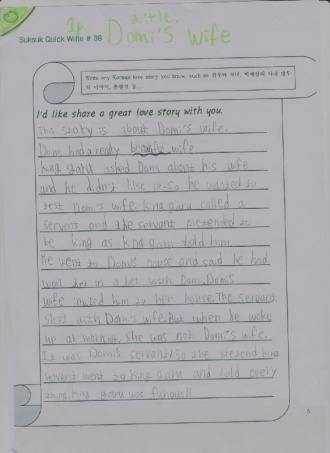 1p
Suksuk Quick Write # 38
Domi's wife
Write any Korean love story you know, such as 견우와 직녀,
I'd like share a great love story with you.
This story is about Domi's wife.
Domi had a really beautiful wife.
King garu asked Domi about his wife
and he didn't like it. so he wanted to
test Domi's wife. King garu called a
servent and the servant pretended to
be king as king garu told him.
He went to Domi's house and said he had
won her in a bet with Domi. Domi's
wife invited him to her house. The servant
slept with Domi's wife. But when he woke
up at morning, she was not Domi's wife.
It was Domi's servant! So the pretend king
servant went to king garu and told every
thing. king garu was furious!!